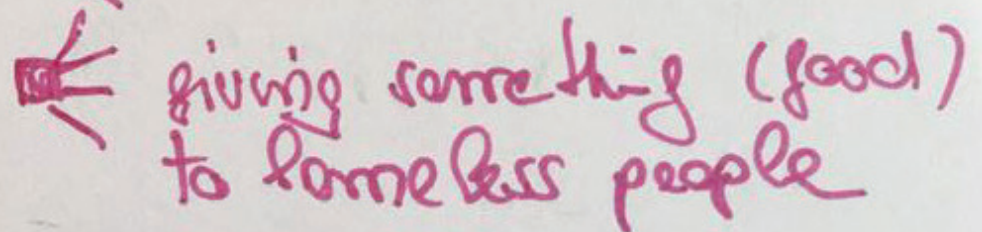 giving something (food)
to homeless people